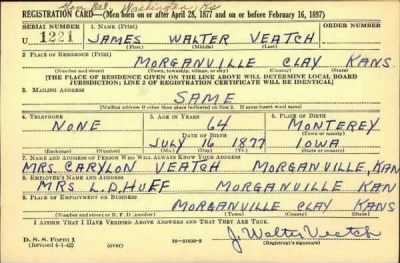 Gen Del, Washington, Ks
REGISTRATION CARD—(Men born on or after April 28, 1877 and on or before February 16, 1897)
SERIAL NUMBER 1. NAME (Print) ORDER NUMBER
U 1221 JAMES WALTER VEATCH
(First) (Middle) (Last)
2. PLACE OF RESIDENCE (Print)
MORGANVILLE CLAY KANS.
(Number and street) (Town, township, village, or city) (County) (State)
[THE PLACE OF RESIDENCE GIVEN ON THE LINE ABOVE WILL DETERMINE LOCAL BOARD
JURISDICTION; LINE 2 OF REGISTRATION CERTIFICATE WILL BE IDENTICAL]
3. MAILING ADDRESS
SAME
[Mailing address if other than place indicated on line 2. If same insert word same]
4. TELEPHONE 5. AGE IN YEARS 6. PLACE OF BIRTH
NONE 64 MONTEREY
DATE OF BIRTH (Town or county)
JULY 16 1877 IOWA
(Exchange) (Number) (Mo.) (Day) (Yr.) (State or country)
7. NAME AND ADDRESS OF PERSON WHO WILL ALWAYS KNOW YOUR ADDRESS
MRS. CARYLON VEATCH MORGANVILLE, KAN
8. EMPLOYER'S NAME AND ADDRESS
MRS L.D. HUFF MORGANVILLE KAN
9. PLACE OF EMPLOYMENT OR BUSINESS
MORGANVILLE CLAY KANS
(Number and street or R. F. D. number) (Town) (County) (State)
I AFFIRM THAT I HAVE VERIFIED ABOVE ANSWERS AND THAT THEY ARE TRUE.
J. Walter Veatch
D. S. S. Form 1
(Revised 4-1-42) (over) 16—21630-2 (Registrant's signature)